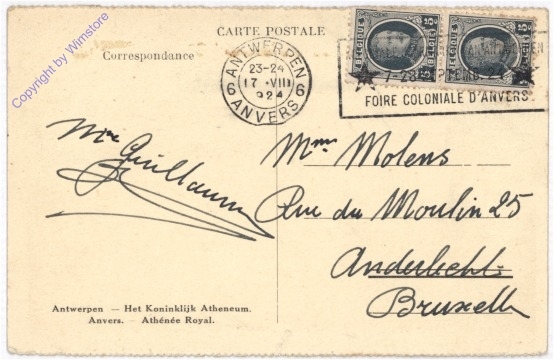 CARTE POSTALE
Correspondance
Copyright by Wimstore
ANTWERPEN
23-24
17 · VIII
924
6 6
ANVERS
BELGIQUE BELGIE 5c
BELGIQUE BELGIE 5c
FOIRE COLONIALE D'ANVERS
Guillaume
Mme Molens
Rue du Moulin 25
Anderlecht
Bruxelles
Antwerpen — Het Koninklijk Atheneum.
Anvers. — Athénée Royal.